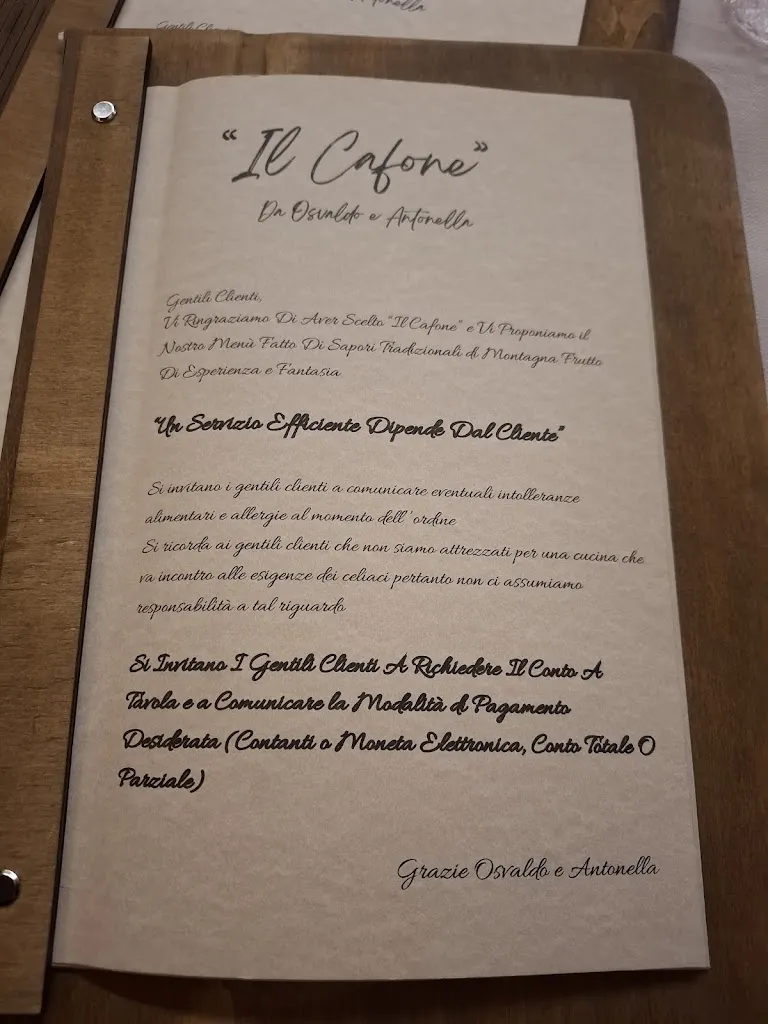 Antonella
Gentili Clienti,
"Il Cafone"
Da Osvaldo e Antonella
Gentili Clienti,
Vi Ringraziamo Di Aver Scelto "Il Cafone" e Vi Proponiamo il
Nostro Menù Fatto Di Sapori Tradizionali di Montagna Frutto
Di Esperienza e Fantasia
"Un Servizio Efficiente Dipende Dal Cliente"
Si invitano i gentili clienti a comunicare eventuali intolleranze
alimentari e allergie al momento dell'ordine
Si ricorda ai gentili clienti che non siamo attrezzati per una cucina che
va incontro alle esigenze dei celiaci pertanto non ci assumiamo
responsabilità a tal riguardo
Si Invitano I Gentili Clienti A Richiedere Il Conto A
Tavola e a Comunicare la Modalità di Pagamento
Desiderata (Contanti o Moneta Elettronica, Conto Totale O
Parziale)
Grazie Osvaldo e Antonella